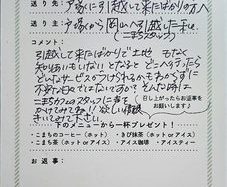 送り先: 戸塚に引越して来たばかりの方へ
送り主: 戸塚から岡山へ引越した
(こまちスタッフ)
コメント:
引越して来たばかりで土地 もなく
知り合いもいないとなると どこへ行ったら
どんなサービスがうけられるかもわからずに
不安な日々ではないですか? そんな時は
こまちカフェのスタッフに声を
かけてみて 欲しい情報
きいてみて下さい
召し上がったらお返事を
お願いします♪
下のメニューから一杯プレゼント!
・こまちのコーヒー(ホット) ・きび抹茶(ホット or アイス)
・こまち茶(ホット or アイス) ・アイス珈琲 ・アイスティー
お返事: